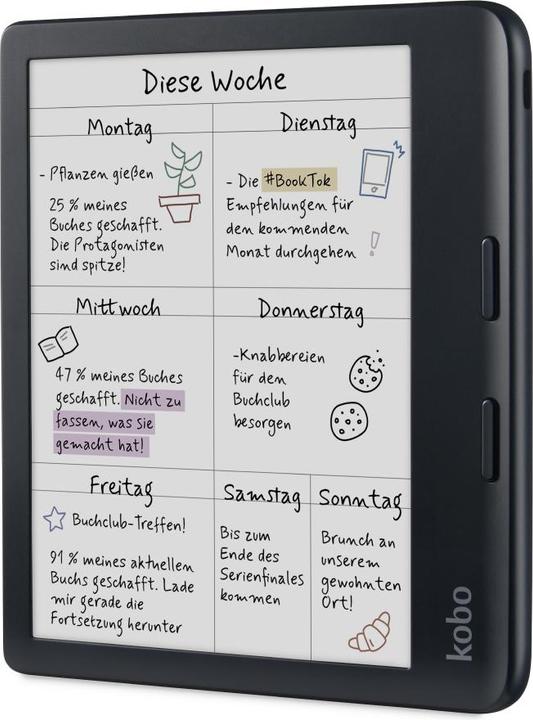 Diese Woche
Montag
- Pflanzen gießen
25 % meines
Buches geschafft.
Die Protagonisten
sind spitze!
Dienstag
- Die #BookTok
Empfehlungen für
den kommenden
Monat durchgehen
Mittwoch
47 % meines Buches
geschafft. Nicht zu
fassen, was sie
gemacht hat!
Donnerstag
-Knabbereien
für den
Buchclub
besorgen
Freitag
Buchclub-Treffen!
91 % meines aktuellen
Buchs geschafft. Lade
mir gerade die
Fortsetzung herunter
Samstag
Bis zum
Ende des
Serienfinales
kommen
Sonntag
Brunch an
unserem
gewohnten
Ort!
kobo